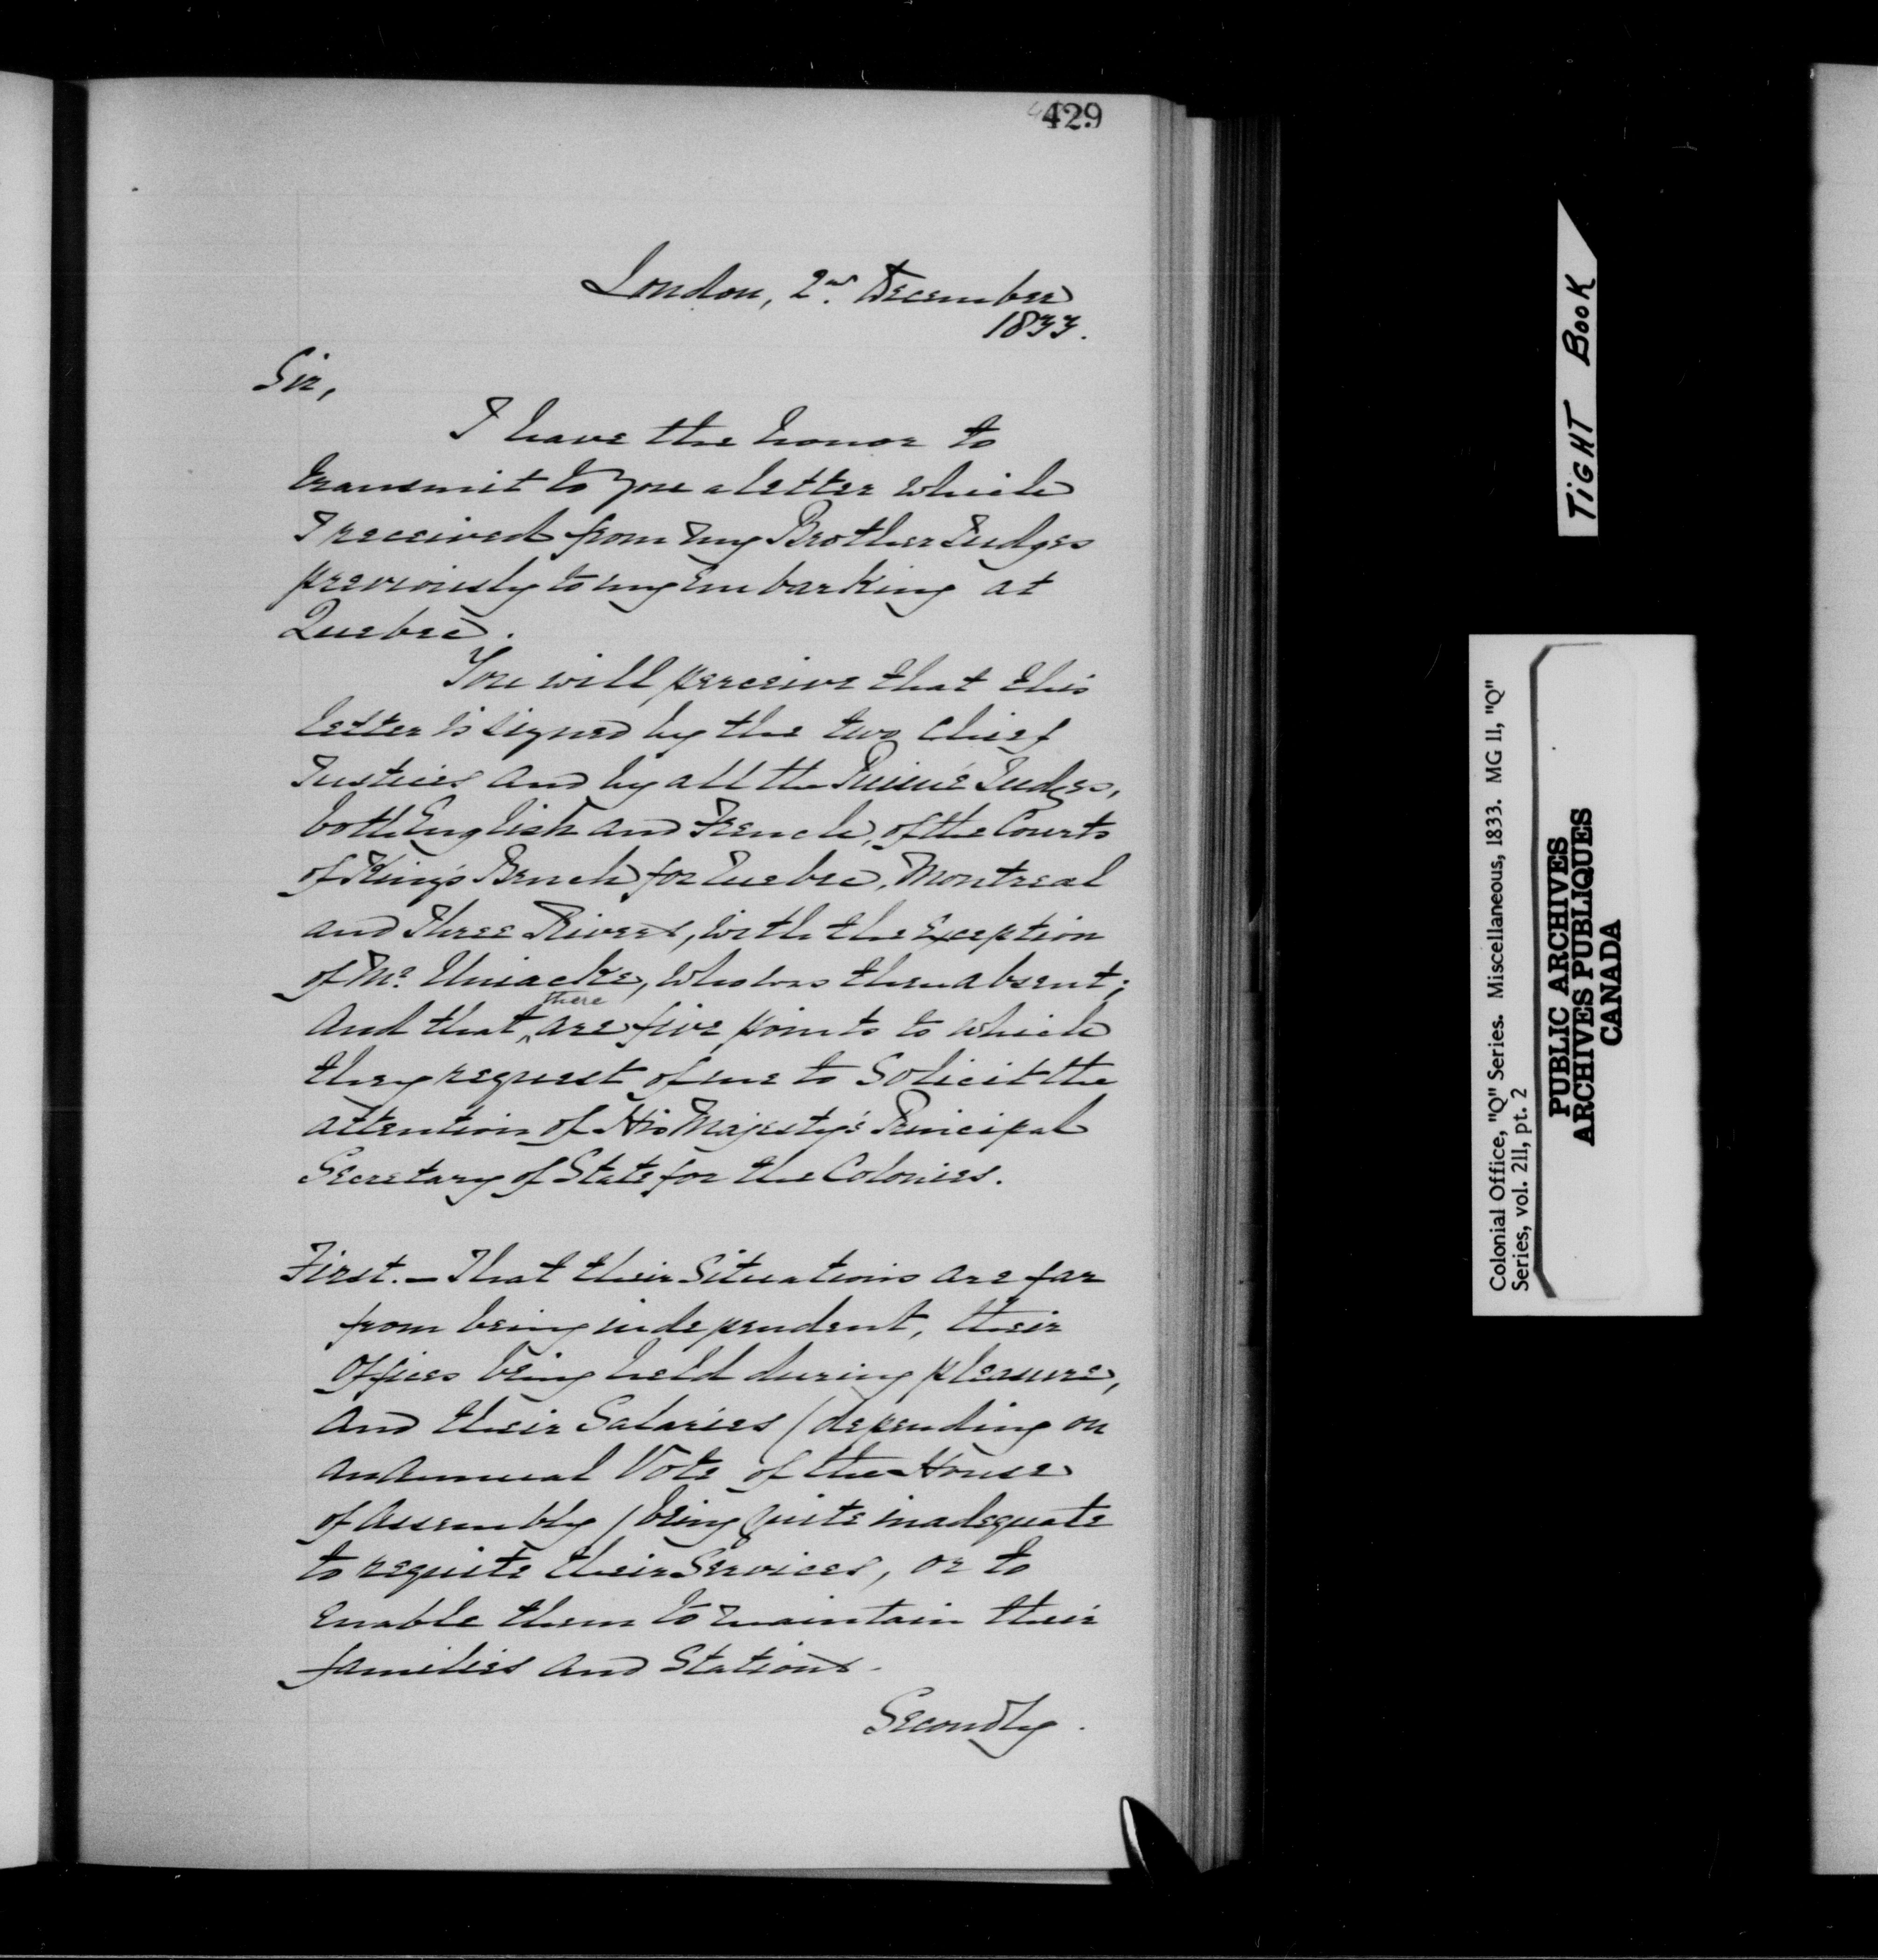 429
London, 2nd. December
1833.
Sir,
I have the honor to
transmit to you a letter which
I received from my Brother Judges
previously to my Embarking at
Quebec.
You will perceive that this
letter is signed by the two Chief
Justices and by all the Puisné Judges,
both English and French, of the Courts
of King's Bench for Quebec, Montreal
and Three Rivers, with the Exception
of Mr. Uniacke, who was then absent;
And that there are five points to which
they request of me to Solicit the
attention of His Majesty's Principal
Secretary of State for the Colonies.
First. – That their Situations are far
from being independent, their
Offices being held during pleasure,
and their Salaries (depending on
an annual Vote of the House
of Assembly) being quite inadequate
to requite their Services, or to
Enable them to maintain their
families and Stations.
Secondly.
TIGHT BOOK
Colonial Office, "Q" Series. Miscellaneous, 1833. MG 11, "Q"
Series, vol. 211, pt. 2
PUBLIC ARCHIVES
ARCHIVES PUBLIQUES
CANADA